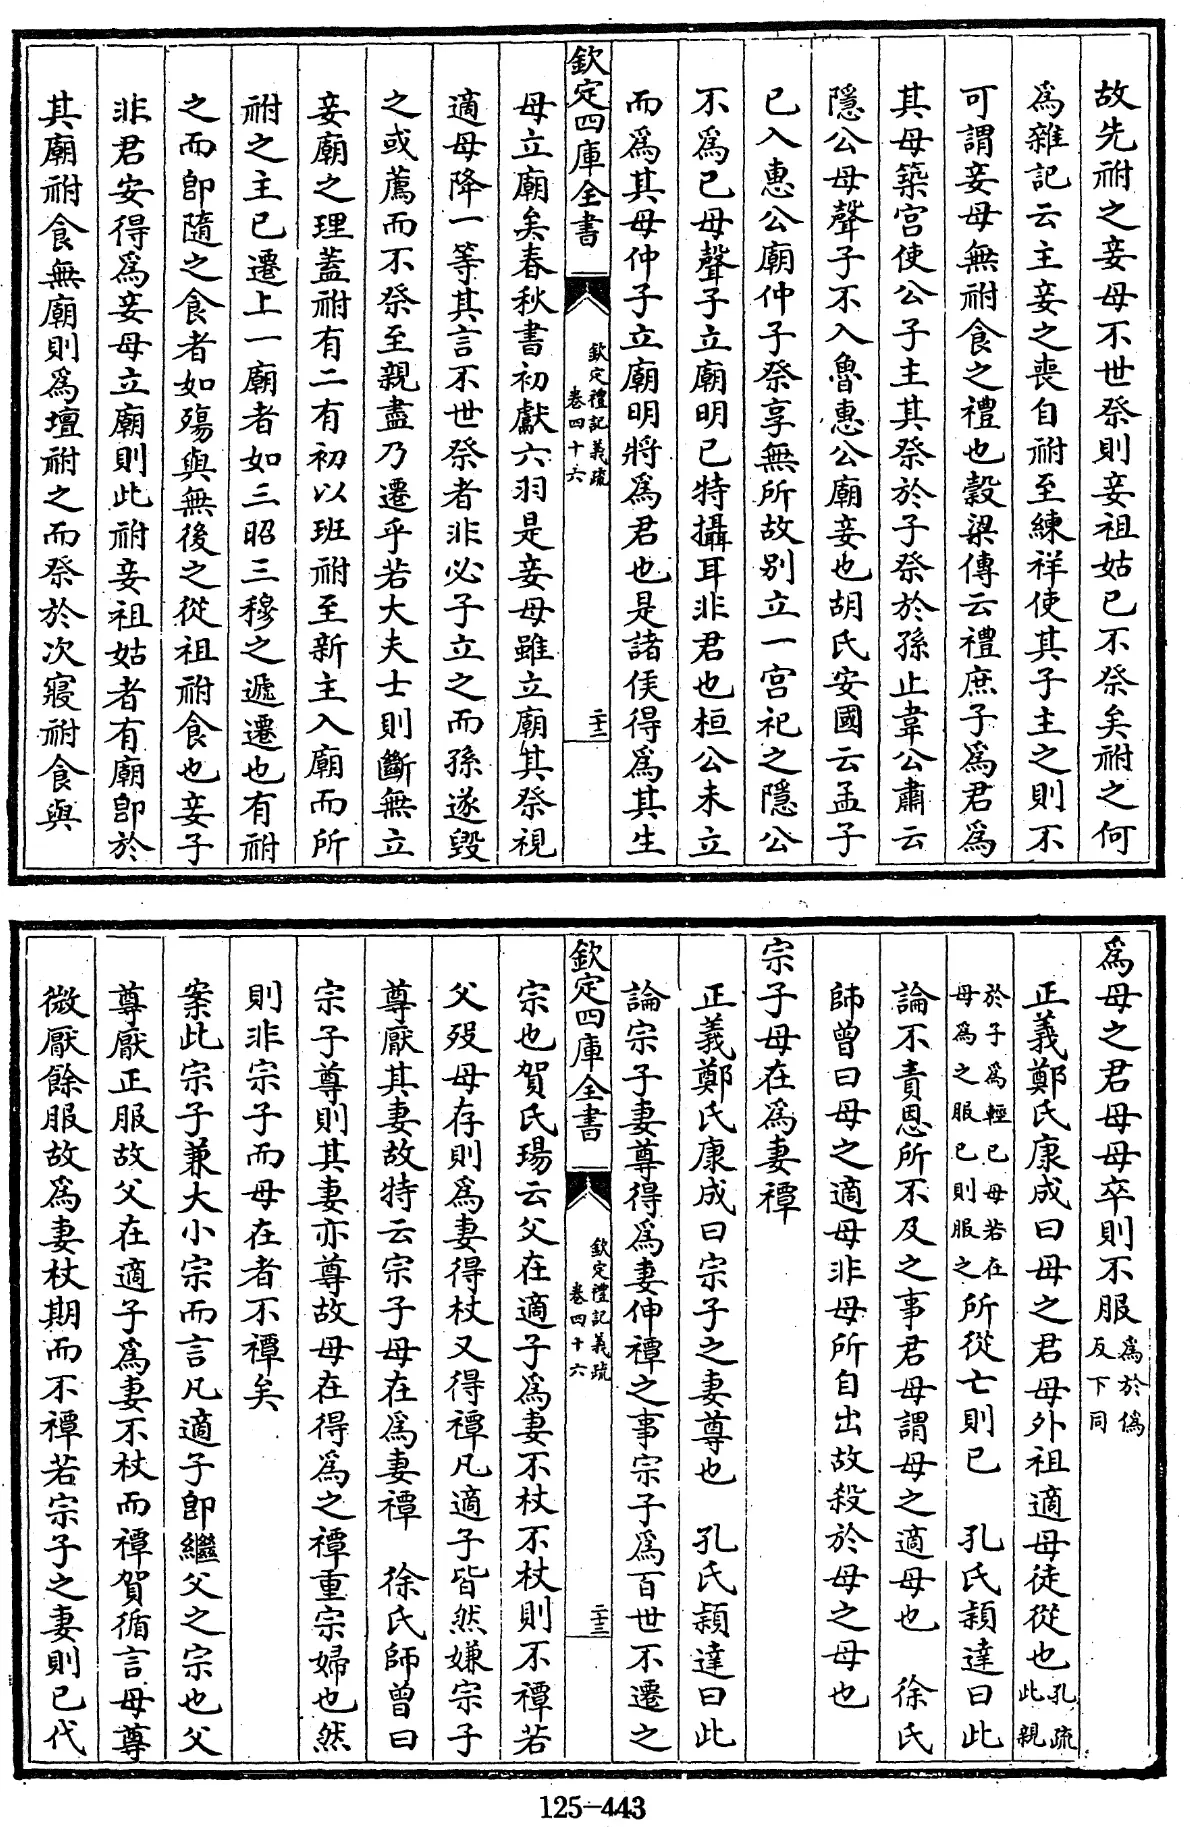 故先祔之妾母不世祭則妾祖姑已不祭矣祔之何
為雜記云主妾之喪自祔至練祥使其子主之則不
可謂妾母無祔食之禮也穀梁傳云禮庶子為君為
其母築宮使公子主其祭於子祭於孫止韋公肅云
隱公母聲子不入魯惠公廟妾也胡氏安國云孟子
已入惠公廟仲子祭享無所故別立一宮祀之隱公
不為已母聲子立廟明已特攝耳非君也桓公未立
而為其母仲子立廟明將為君也是諸侯得為其生
欽定四庫全書
欽定禮記義疏
卷四十六
二十二
母立廟矣春秋書初獻六羽是妾母雖立廟其祭視
適母降一等其言不世祭者非必子立之而孫遂毀
之或薦而不祭至親盡乃遷乎若大夫士則斷無立
妾廟之理蓋祔有二有初以班祔至新主入廟而所
祔之主已遷上一廟者如三昭三穆之遞遷也有祔
之而卽隨之食者如殤與無後之從祖祔食也妾子
非君安得為妾母立廟則此祔妾祖姑者有廟卽於
其廟祔食無廟則為壇祔之而祭於次寢祔食與
為母之君母母卒則不服為於偽反下同
正義鄭氏康成曰母之君母外祖適母徒從也孔疏此親
於子為輕已母若在母為之服已則服之所從亡則已　孔氏穎達曰此
論不責恩所不及之事君母謂母之適母也　徐氏
師曾曰母之適母非母所自出故殺於母之母也
宗子母在為妻禫
正義鄭氏康成曰宗子之妻尊也　孔氏穎達曰此
論宗子妻尊得為妻伸禫之事宗子為百世不遷之
欽定四庫全書
欽定禮記義疏
卷四十六
二十三
宗也賀氏瑒云父在適子為妻不杖不杖則不禫若
父歿母存則為妻得杖又得禫凡適子皆然嫌宗子
尊厭其妻故特云宗子母在為妻禫　徐氏師曾曰
宗子尊則其妻亦尊故母在得為之禫重宗婦也然
則非宗子而母在者不禫矣
案此宗子兼大小宗而言凡適子卽繼父之宗也父
尊厭正服故父在適子為妻不杖而禫賀循言母尊
微厭餘服故為妻杖期而不禫若宗子之妻則已代
125-443